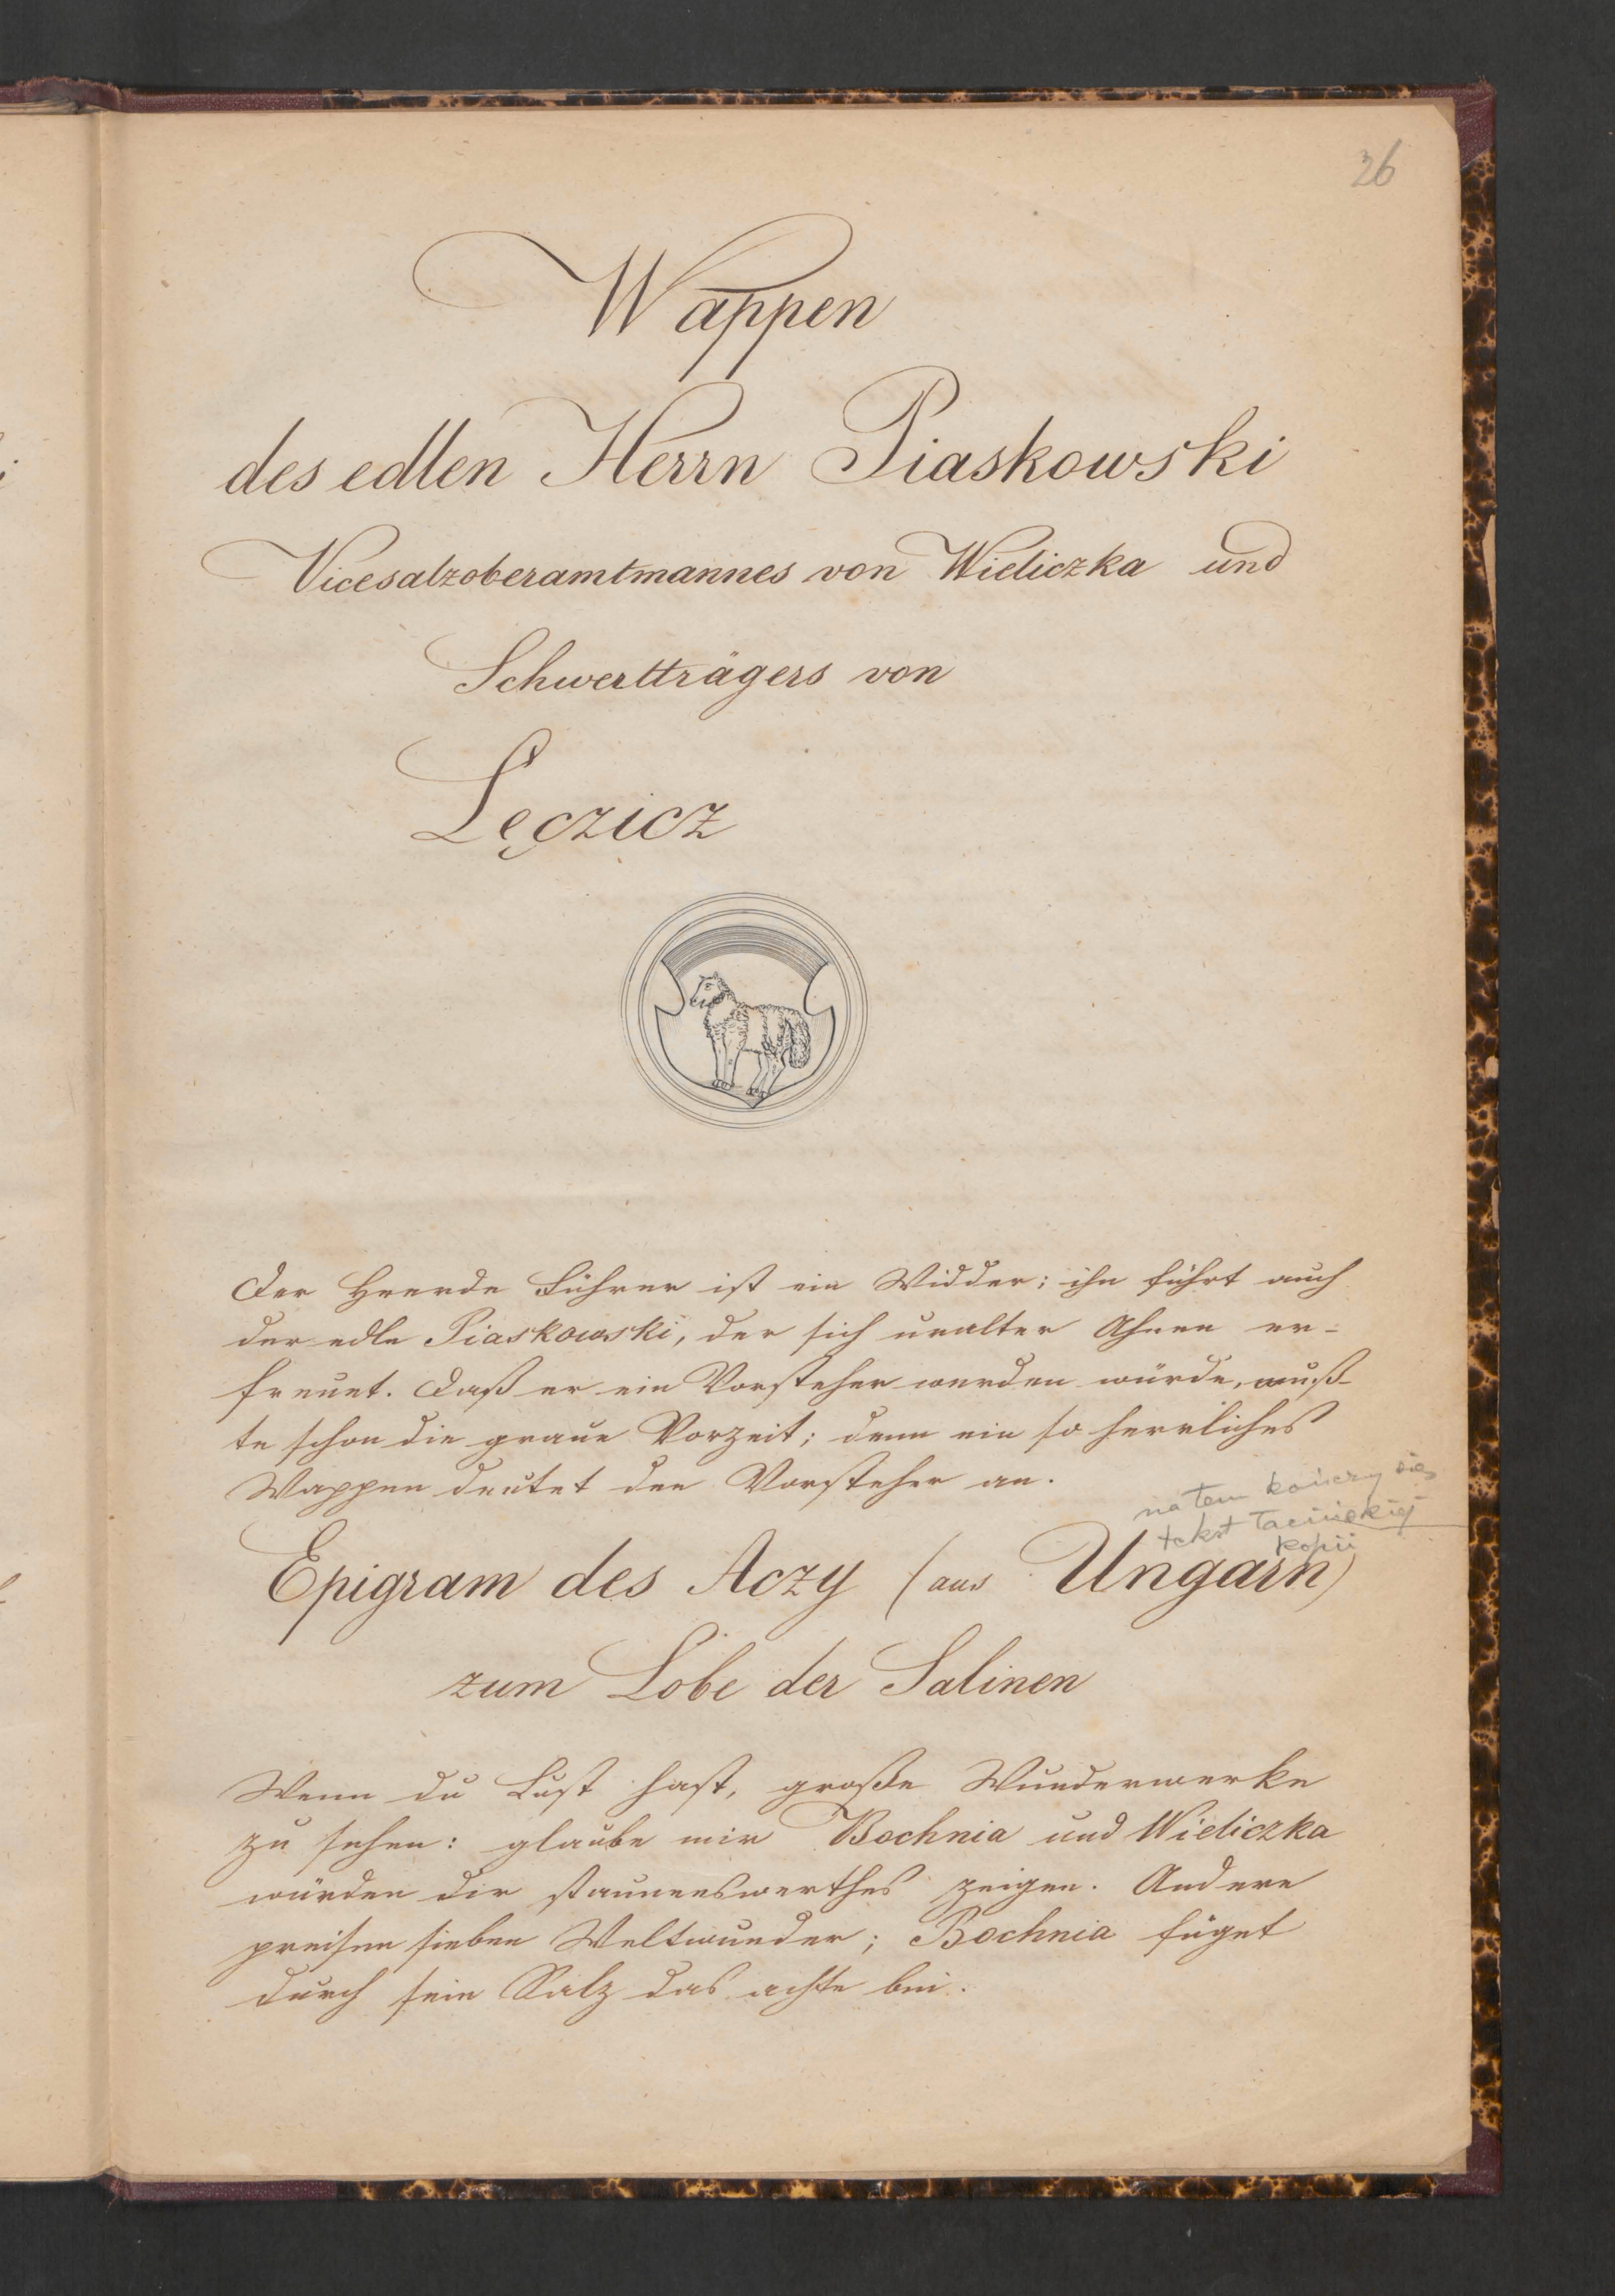 26
Wappen
des edlen Herrn Piaskowski
Vicesalzoberamtmannes von Wieliczka und
Schwertträgers von
Lęczicz
Der Heerde Führer ist ein Widder; ihn führt auch
der edle Piaskowski, der sich uralter Ahnen er-
freuet. Daß er ein Vorsteher werden würde, wuß-
te schon die graue Vorzeit; denn ein so herrliches
Wappen deutet den Vorsteher an.
na tem kończy się
tekst łacińskiej
kopii
Epigram des Aczy (aus Ungarn)
zum Lobe der Salinen
Wenn du Lust hast, große Wunderwerke
zu sehen: glaube mir Bochnia und Wieliczka
würden dir staunenswerthes zeigen. Andere
preisen sieben Weltwunder; Bochnia füget
durch sein Salz das achte bei.